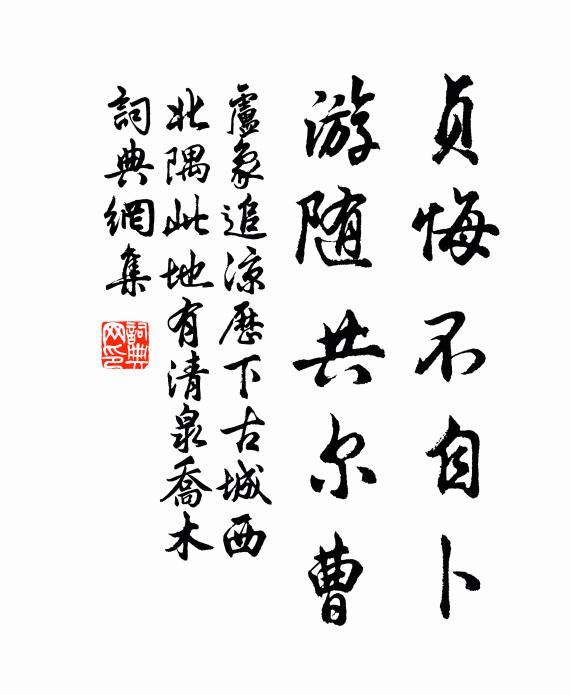 贞悔不自卜
游随共尔曹
盧象追涼歷下古城西
北隅此地有清泉喬木
詞典網集
詞典網印